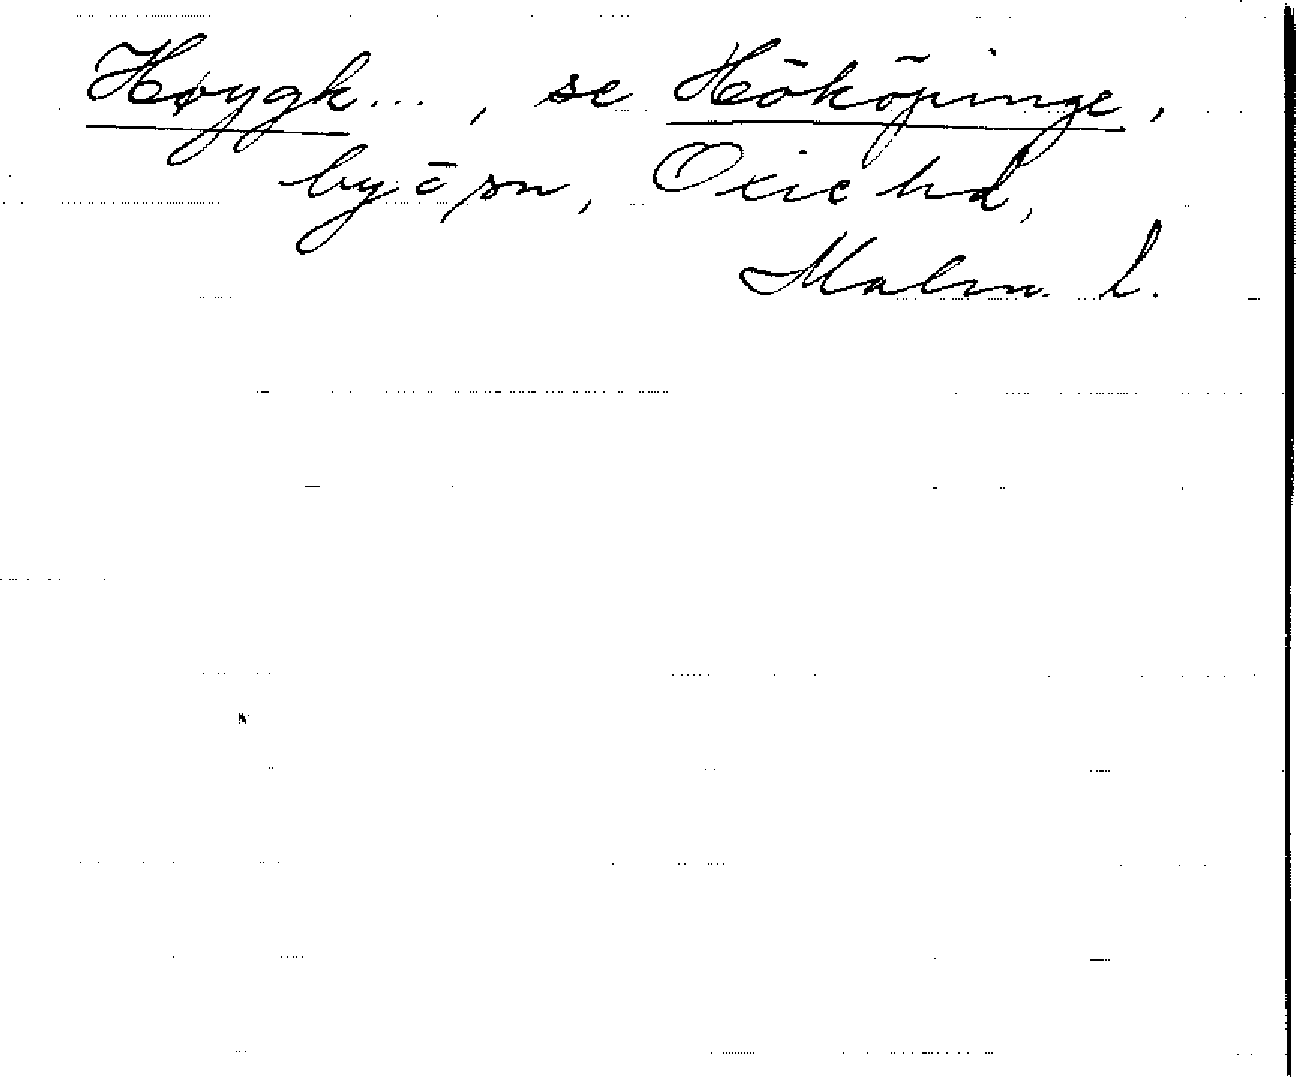 Høygk... , se Hököpinge,
by o sn, Oxie hd,
Malm. l.